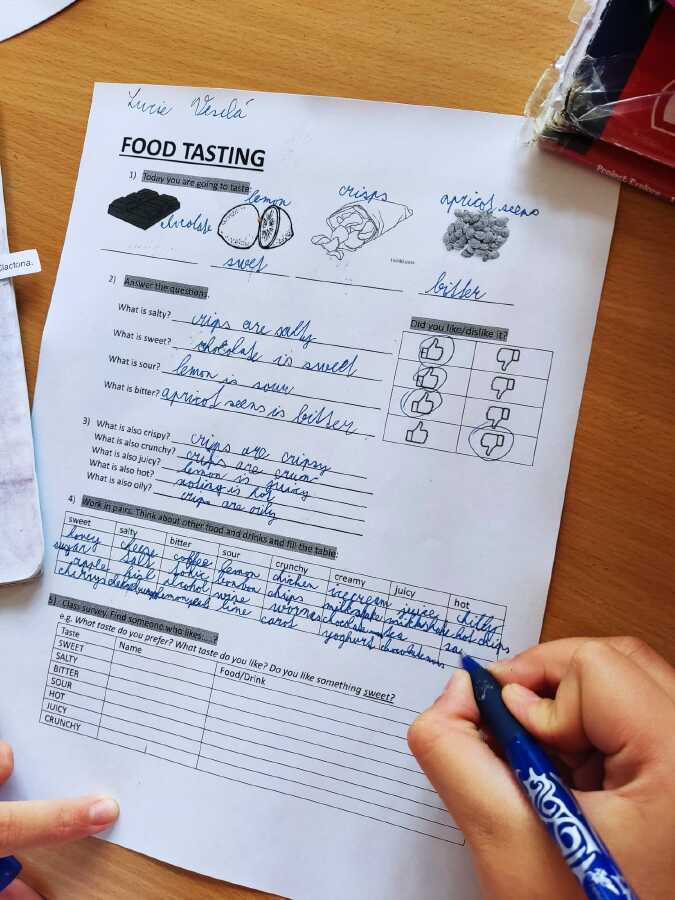 Lucie Veselá
FOOD TASTING
1) Today you are going to taste:
chocolate lemon crisps apricot seens
swet bitter
2) Answer the questions.
What is salty? crips are salty
What is sweet? chocolate is sweet
What is sour? lemon is sour
What is bitter? apricot seens is bitter.
Did you like/dislike it?
3) What is also crispy? crips are cripsy
What is also crunchy? crips are crun
What is also juicy? lemon is juicy
What is also hot? noting is hot
What is also oily? crips are oily
4) Work in pairs. Think about other food and drinks and fill the table:
sweet salty bitter sour crunchy creamy juicy hot
honey coffee lemon chicken icecream juice
sugar salt tonic bonbon chips milkshake hot chips
apple alcohol wine worms
lime carot yoghurt
5) Class survey. Find someone who likes....?
e.g. What taste do you prefer? What taste do you like? Do you like something sweet?
Taste Name Food/Drink
SWEET
SALTY
BITTER
SOUR
HOT
JUICY
CRUNCHY
Project Explore